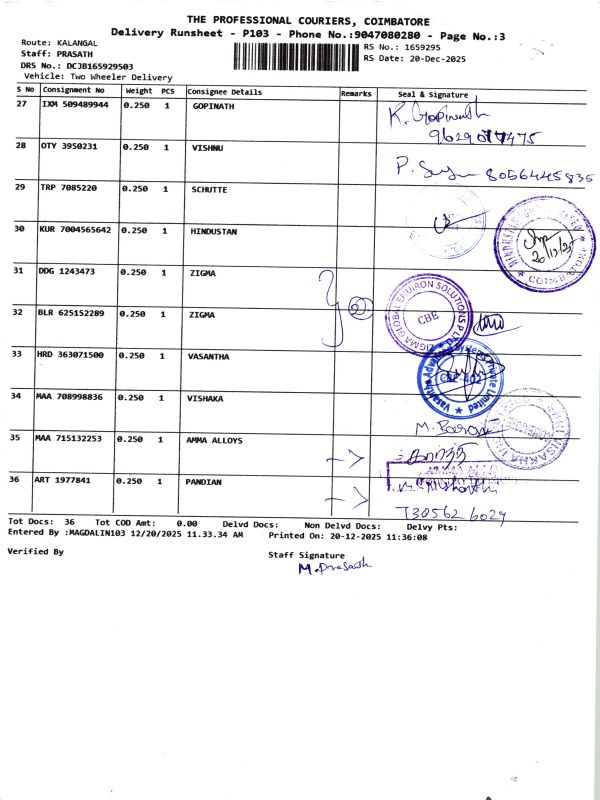 THE PROFESSIONAL COURIERS, COIMBATORE
Delivery Runsheet - P103 - Phone No.:9047080280 - Page No.:3
Route: KALANGAL
Staff: PRASATH
DRS No.: DCJB165929503
Vehicle: Two Wheeler Delivery
RS No.: 1659295
RS Date: 20-Dec-2025
S No Consignment No Weight PCS Consignee Details Remarks Seal & Signature
27 IXM 509489944 0.250 1 GOPINATH K. Gopinath
9629017475
28 OTY 3950231 0.250 1 VISHNU 8056445835
29 TRP 7085220 0.250 1 SCHUTTE
30 KUR 7004565642 0.250 1 HINDUSTAN 20/12/25
31 DDG 1243473 0.250 1 ZIGMA 2
ZIGMA GLOBAL ENVIRON SOLUTIONS P LTD
CBE
32 BLR 625152289 0.250 1 ZIGMA
33 HRD 363071500 0.250 1 VASANTHA
Vasantha Advanced Systems Private Limited
CBE-402
34 MAA 708998836 0.250 1 VISHAKA
35 MAA 715132253 0.250 1 AMMA ALLOYS
36 ART 1977841 0.250 1 PANDIAN
730562 6029
Tot Docs: 36 Tot COD Amt: 0.00 Delvd Docs: Non Delvd Docs: Delvy Pts:
Entered By :MAGDALIN103 12/20/2025 11.33.34 AM Printed On: 20-12-2025 11:36:08
Verified By Staff Signature
M. Prasath